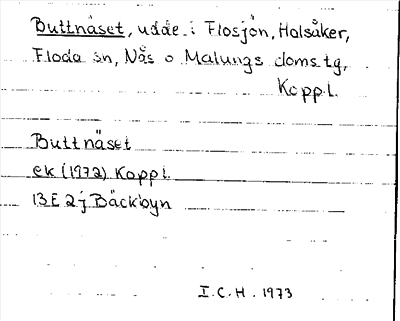 Buttnäset, udde i Flosjön, Holsåker,
Floda sn, Nås o Malungs doms.tg,
Kopp.l.
Buttnäset
ek (1972) Kopp.l.
13E 2j Bäckbyn
I.C.H. 1973